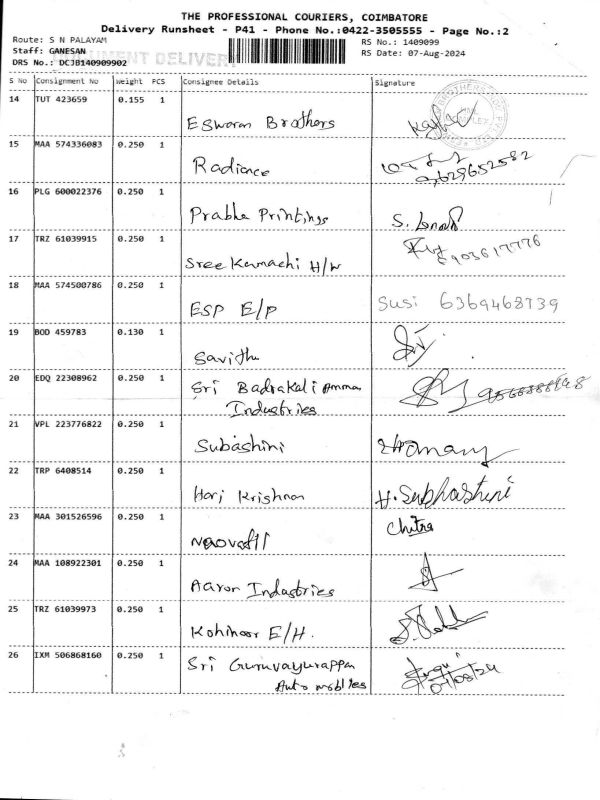 THE PROFESSIONAL COURIERS, COIMBATORE
Delivery Runsheet - P41 - Phone No.:0422-3505555 - Page No.:2
Route: S N PALAYAM
RS No.: 1409099
Staff: GANESAN
RS Date: 07-Aug-2024
DRS No.: DCJB140909902
S No Consignment No Weight PCS Consignee Details Signature
14 TUT 423659 0.155 1
Eswaran Brothers
15 MAA 574336083 0.250 1
Radiance
9629652582
16 PLG 600022376 0.250 1
Prabha Printings S.
17 TRZ 61039915 0.250 1
Sree Kamachi H/W 8903617776
18 MAA 574500786 0.250 1
ESP E/P Susi 6369468739
19 BOD 459783 0.130 1
Savithi
20 EDQ 22308962 0.250 1
Sri Badrakali Amman
Industries
21 VPL 223776822 0.250 1
Subashini
22 TRP 6408514 0.250 1
Hari Krishnan H.Subhashini
23 MAA 301526596 0.250 1
Chitra
24 MAA 108922301 0.250 1
Aaron Industries
25 TRZ 61039973 0.250 1
Kohinoor E/H.
26 IXM 506868160 0.250 1
Sri Guruvayurappan
Automobiles 07/08/24